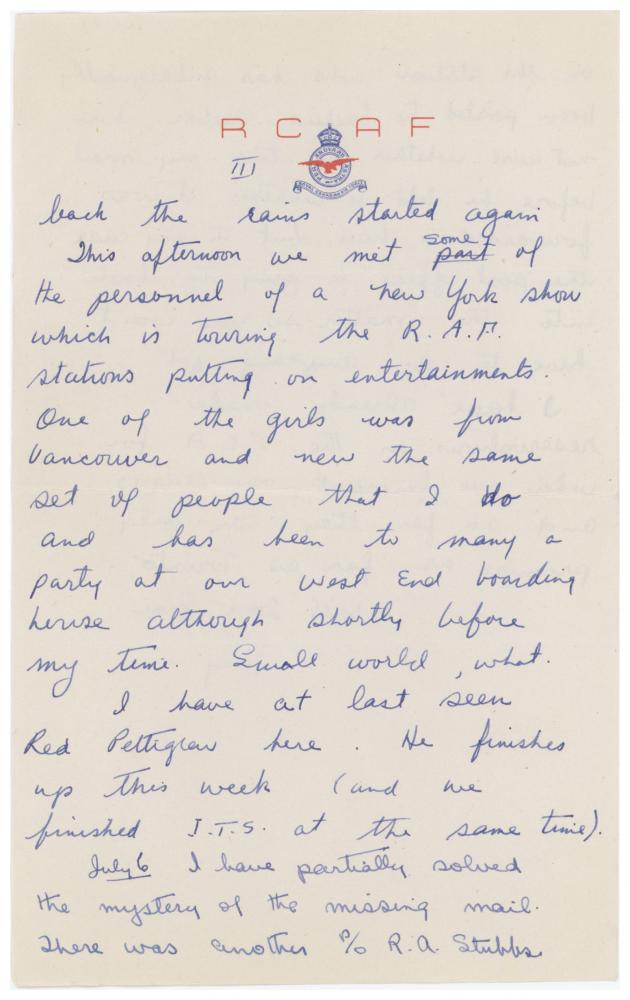 R C A F
III
back the rains started again
This afternoon we met some part of
the personnel of a new York show
which is touring the R.A.F.
stations putting on entertainments.
One of the girls was from
Vancouver and new the same
set of people that I do
and has been to many a
party at our west End boarding
house although shortly before
my time. Small world, what.
I have at last seen
Red Pettigrew here. He finishes
up this week (and we
finished I.T.S. at the same time).
July 6 I have partially solved
the mystery of the missing mail.
There was another P/O R.A. Stubbs